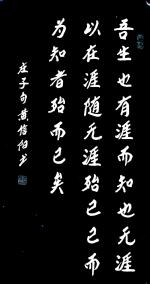 吾生也有涯而知也无涯
以有涯随无涯殆已已而
为知者殆而已矣
庄子句黄信伯书